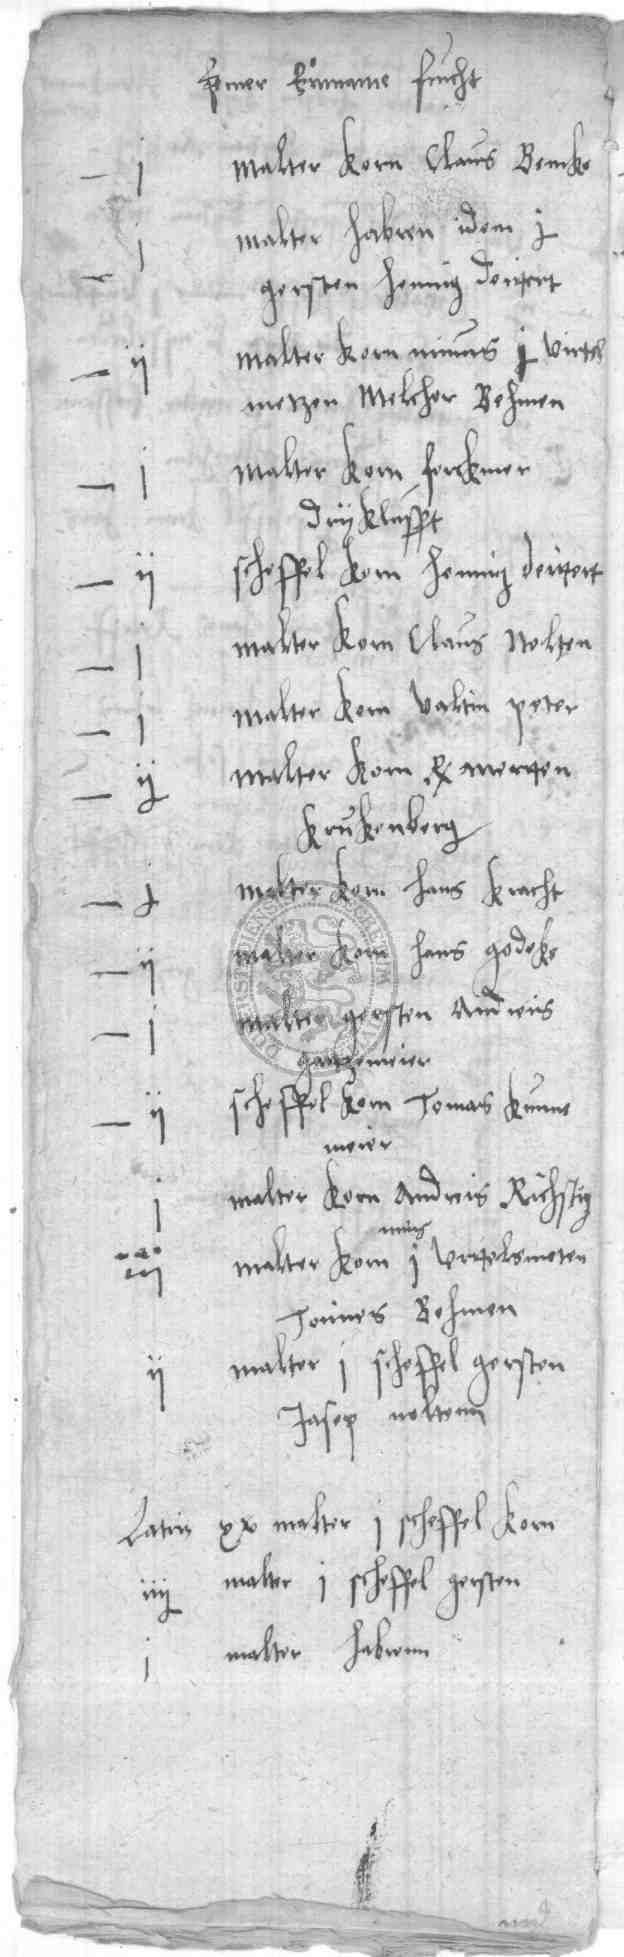 ferner Einname frucht
– j malter korn Claus Bemke
j malter habern idem j
– gersten hennig deitert
– ij malter korn minus j virtel
metzen Melcher Behmen
– j malter korn forkmer
drijklufft
– ij scheffel korn hennig deitert
– j malter korn Claus Nolten
– j malter korn Valtin peter
– ij malter korn merten
krukenberg
– j malter korn hans kracht
– ij malter korn hans godeke
– j malter gersten Andreis
gartzemeier
– ij scheffel korn Tomas kunne
meier
j malter korn Andreis Richstig
minus
iij malter korn j virtelsmeten
Tonnies Behmen
ij malter j scheffel gersten
Jasep noltenn
Latus xx malter j scheffel korn
iiij malter j scheffel gersten
j malter habrenn